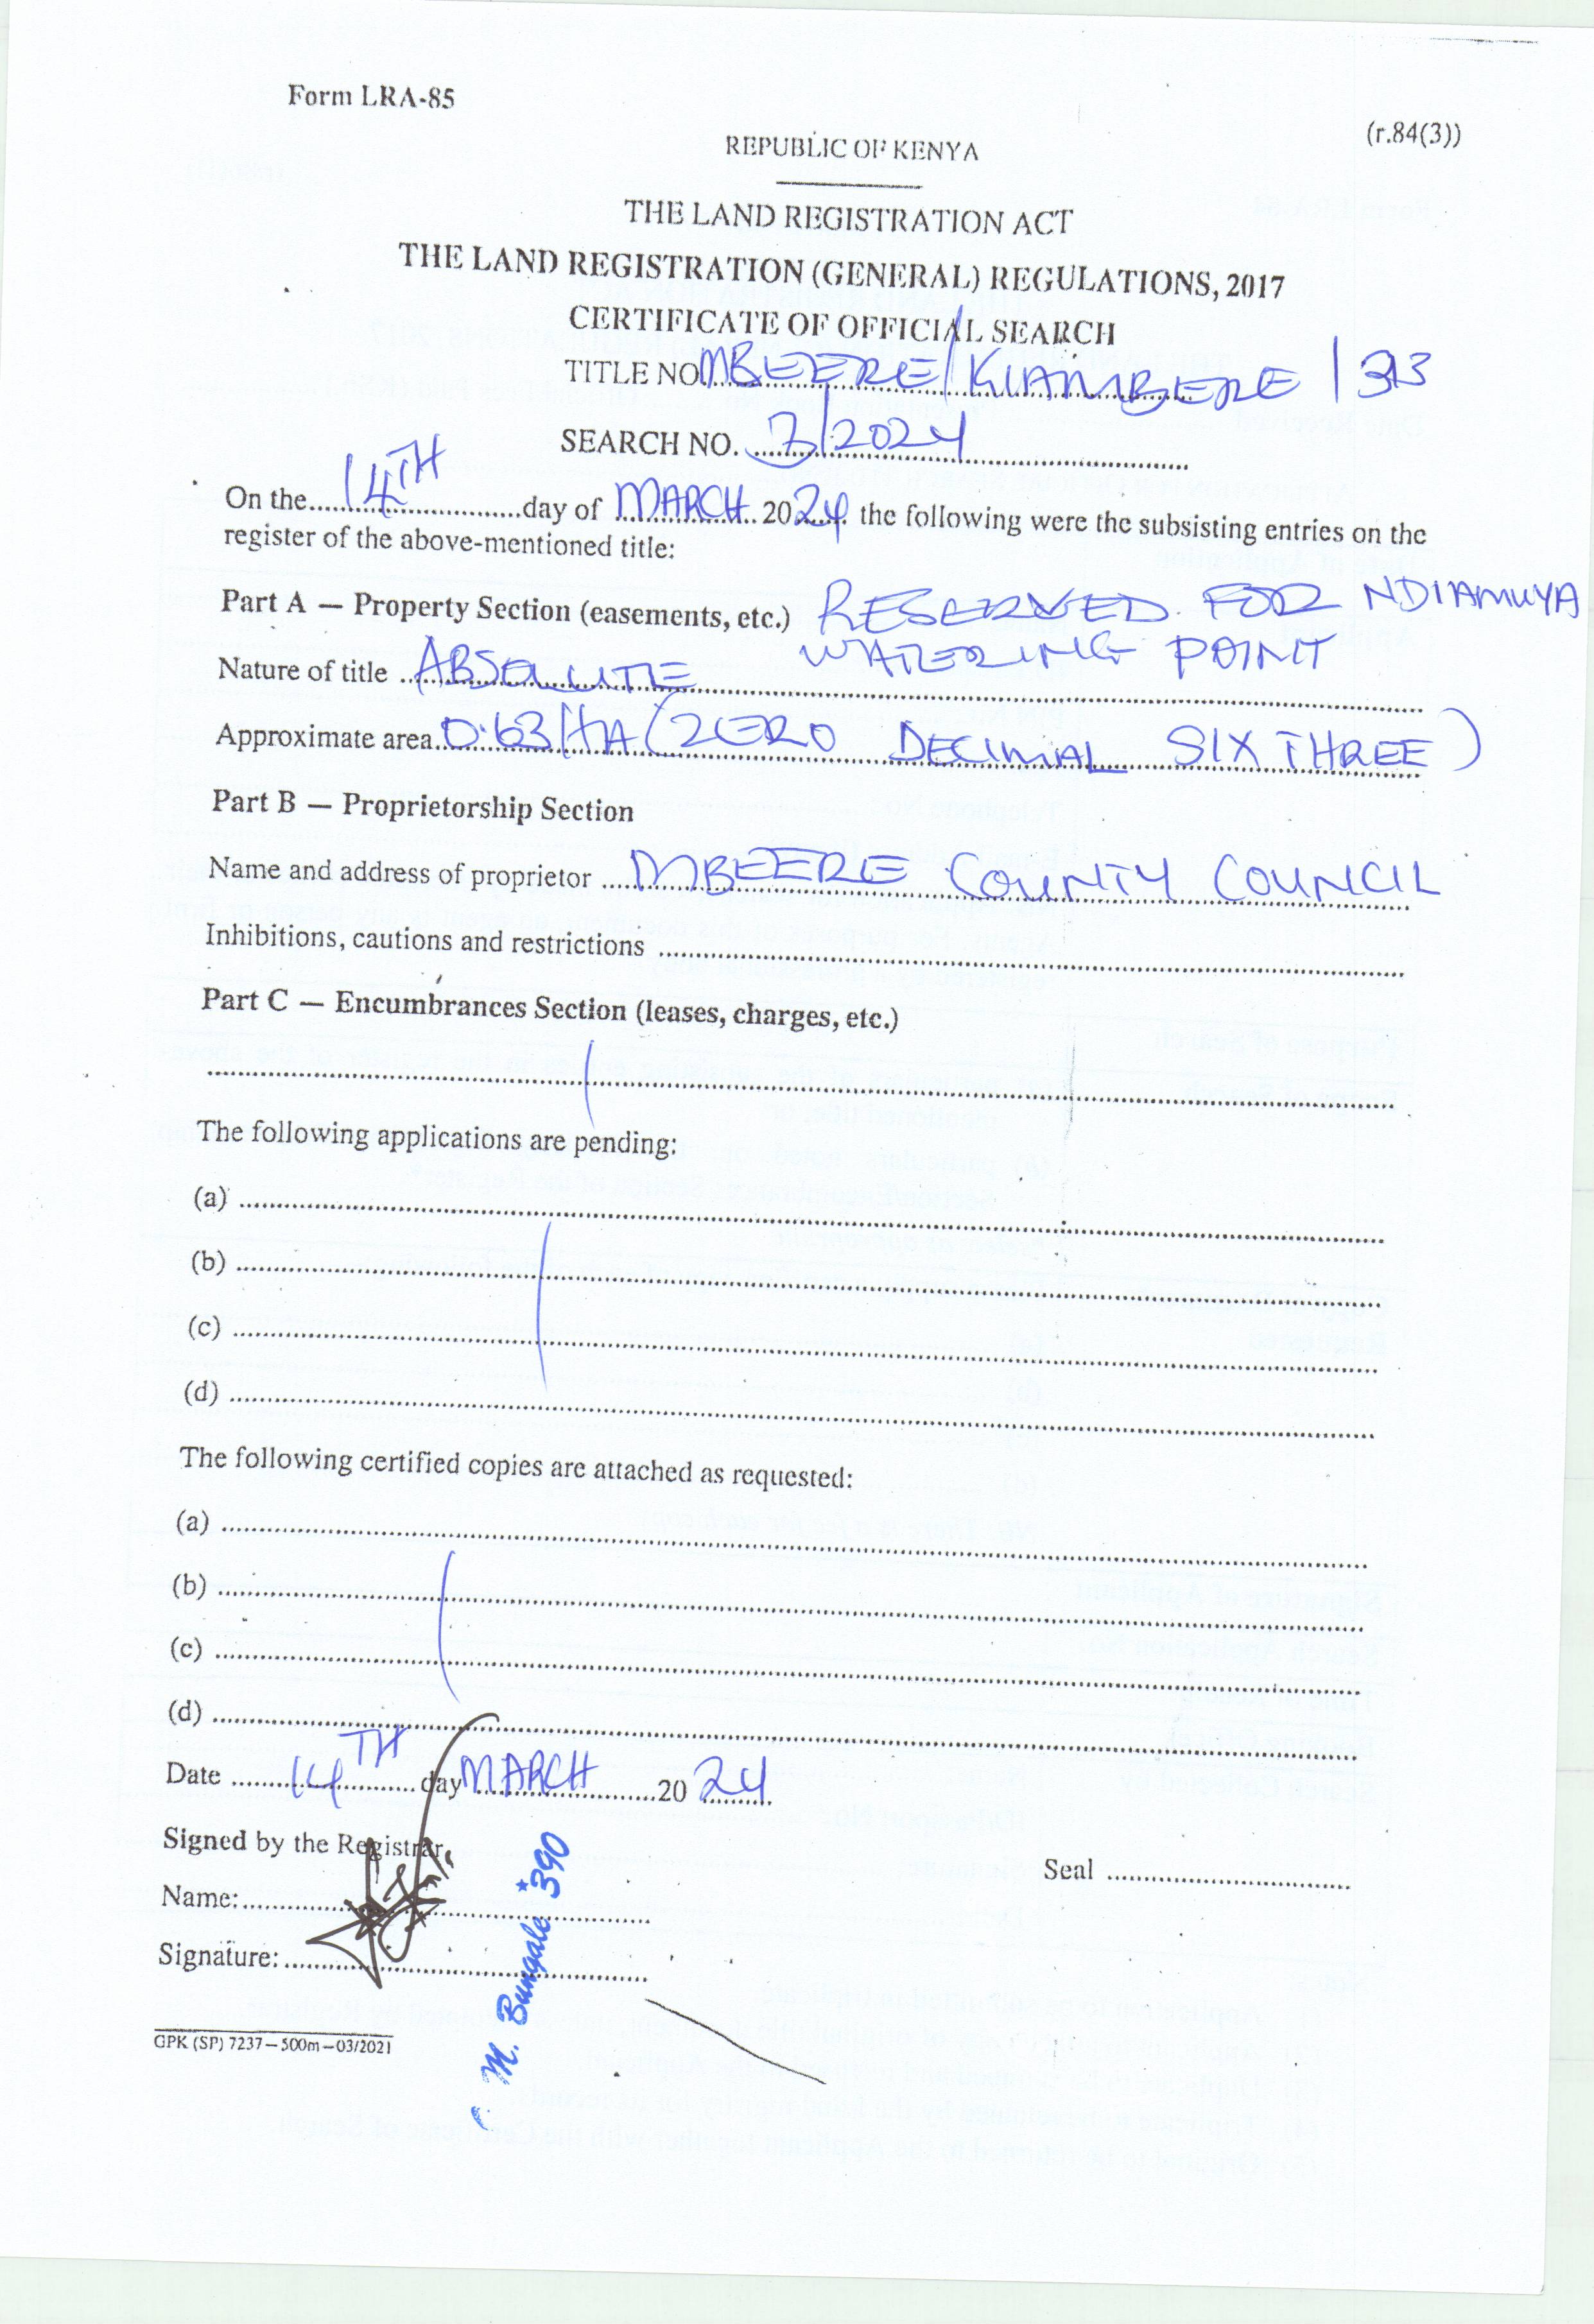 Form LRA-85
(r.84(3))
REPUBLIC OF KENYA
THE LAND REGISTRATION ACT
THE LAND REGISTRATION (GENERAL) REGULATIONS, 2017
CERTIFICATE OF OFFICIAL SEARCH
TITLE NO MBEERE/KIAMBERE/313
SEARCH NO. 3/2024
On the 14TH day of MARCH 2024 the following were the subsisting entries on the
register of the above-mentioned title:
Part A — Property Section (easements, etc.) RESERVED FOR NDIAMUYA
WATERING POINT
Nature of title ABSOLUTE
Approximate area 0.63 HA (ZERO DECIMAL SIX THREE)
Part B — Proprietorship Section
Name and address of proprietor MBEERE COUNTY COUNCIL
Inhibitions, cautions and restrictions
Part C — Encumbrances Section (leases, charges, etc.)
The following applications are pending:
(a)
(b)
(c)
(d)
The following certified copies are attached as requested:
(a)
(b)
(c)
(d)
Date 14TH day MARCH 2024
Signed by the Registrar
Name:
Seal
Signature:
M. Bungale *390
GPK (SP) 7237—500m—03/2021